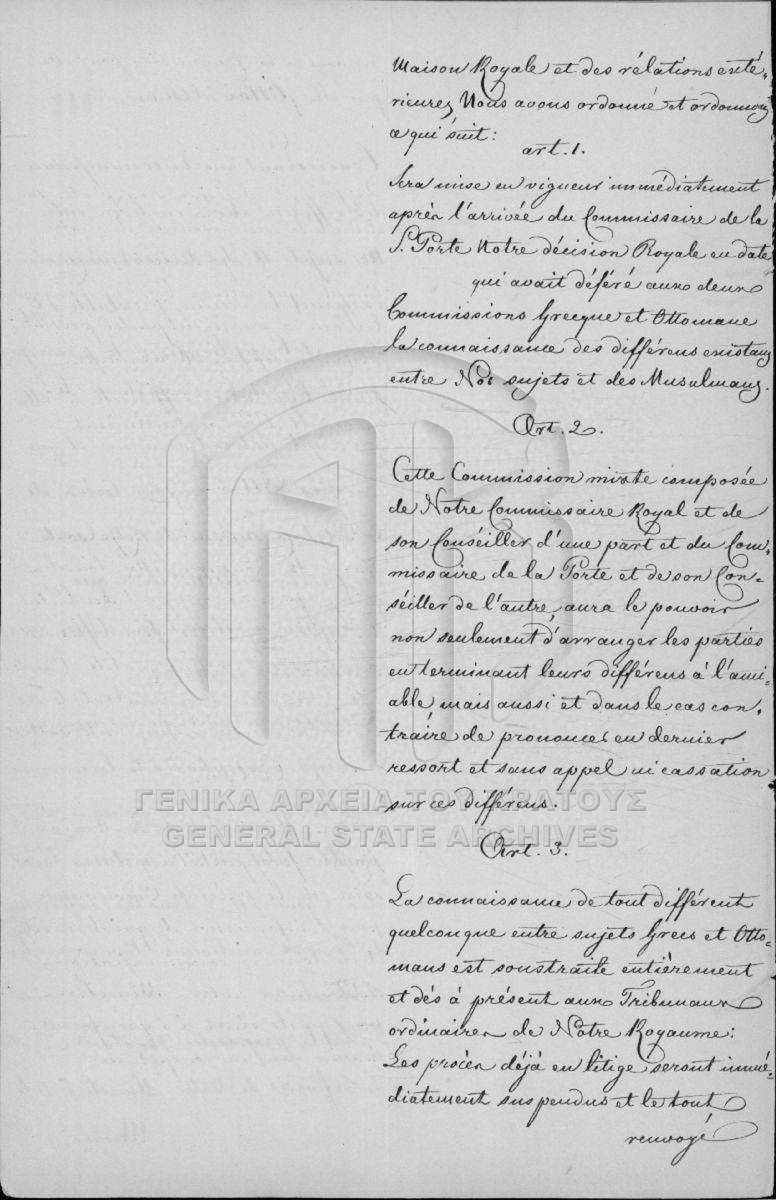 Maison Royale et des rélations exté-
rieures, Nous avons ordonné et ordonnons
ce qui suit:
art. 1.
Sera mise en vigueur immédiatement
après l'arrivée du Commissaire de la
S. Porte Notre décision Royale en date
qui avait déféré aux deux
Commissions Grecque et Ottomane
la connaissance des différens existans
entre Nos sujets et des Musulmans.
Art. 2.
Cette Commission mixte composée
de Notre Commissaire Royal et de
son Conséiller d'une part et du Com-
missaire de la Porte et de son Con-
séiller de l'autre, aura le pouvoir
non seulement d'arranger les parties
en terminant leurs différens à l'ami-
able mais aussi et dans le cas con-
traire de prononcer en dernier
ressort et sans appel ni cassation
sur ces différens.
ΓΕΝΙΚΑ ΑΡΧΕΙΑ ΤΟΥ ΚΡΑΤΟΥΣ
GENERAL STATE ARCHIVES
Art. 3.
La connaissance de tout différent
quelconque entre sujets Grecs et Otto-
mans est soustraite entièrement
et dés à présent aux Tribunaux
ordinaires de Notre Royaume:
Les procès déjà en litige seront immé-
diatement suspendus et le tout
renvoyé